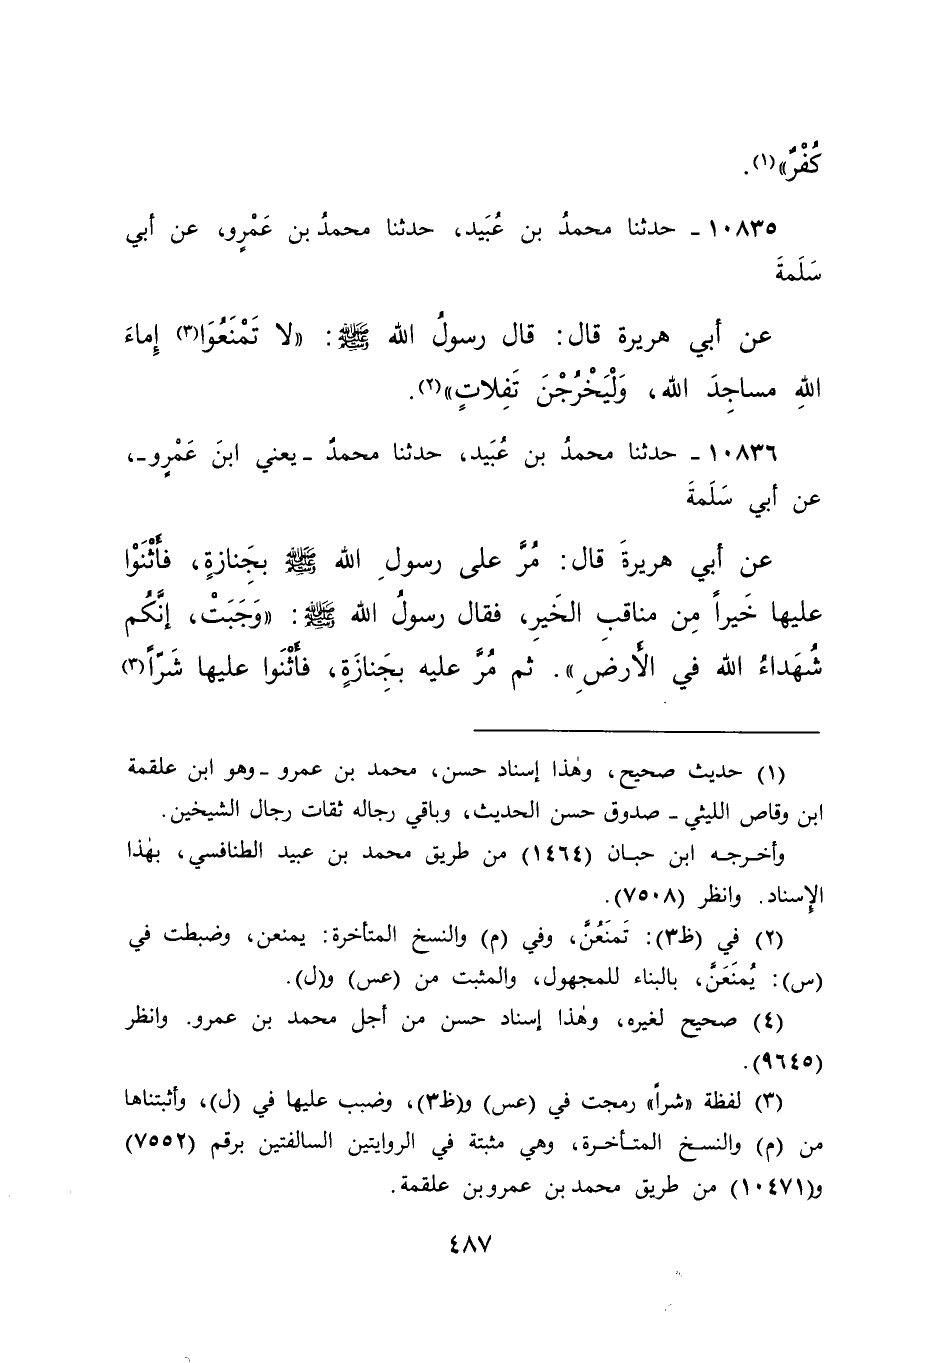 كُفْرٌ»(١).
١٠٨٣٥ ـ حدثنا محمدُ بن عُبَيد، حدثنا محمدُ بن عَمْرٍو، عن أبي
سَلَمةَ
عن أبي هريرة قال: قال رسولُ الله ﷺ: «لا تَمْنَعُوَا(٣) إماءَ
اللهِ مساجِدَ الله، وَلْيَخْرُجْنَ تَفِلاتٍ»(٢).
١٠٨٣٦ ـ حدثنا محمدُ بن عُبَيد، حدثنا محمدٌ ـ يعني ابنَ عَمْرٍو ـ،
عن أبي سَلَمةَ
عن أبي هريرةَ قال: مُرَّ على رسولِ الله ﷺ بجَنازةٍ، فأَثْنَوْا
عليها خَيراً مِن مناقبِ الخَيرِ، فقال رسولُ الله ﷺ: «وَجَبَتْ، إنَّكُم
شُهَداءُ الله في الأَرضِ». ثم مُرَّ عليه بجَنازَةٍ، فأَثْنَوا عليها شَرّاً(٣)
(١) حديث صحيح، وهٰذا إسناد حسن، محمد بن عمرو ـ وهو ابن علقمة
ابن وقاص الليثي ـ صدوق حسن الحديث، وباقي رجاله ثقات رجال الشيخين.
وأخرجه ابن حبان (١٤٦٤) من طريق محمد بن عبيد الطنافسي، بهٰذا
الإسناد. وانظر (٧٥٠٨).
(٢) في (ظ٣): تَمنَعُنَّ، وفي (م) والنسخ المتأخرة: يمنعن، وضبطت في
(س): يُمنَعَنَّ، بالبناء للمجهول، والمثبت من (عس) و(ل).
(٤) صحيح لغيره، وهٰذا إسناد حسن من أجل محمد بن عمرو. وانظر
(٩٦٤٥).
(٣) لفظة «شراً» رمجت في (عس) و(ظ٣)، وضبب عليها في (ل)، وأثبتناها
من (م) والنسخ المتأخرة، وهي مثبتة في الروايتين السالفتين برقم (٧٥٥٢)
و(١٠٤٧١) من طريق محمد بن عمرو بن علقمة.
٤٨٧